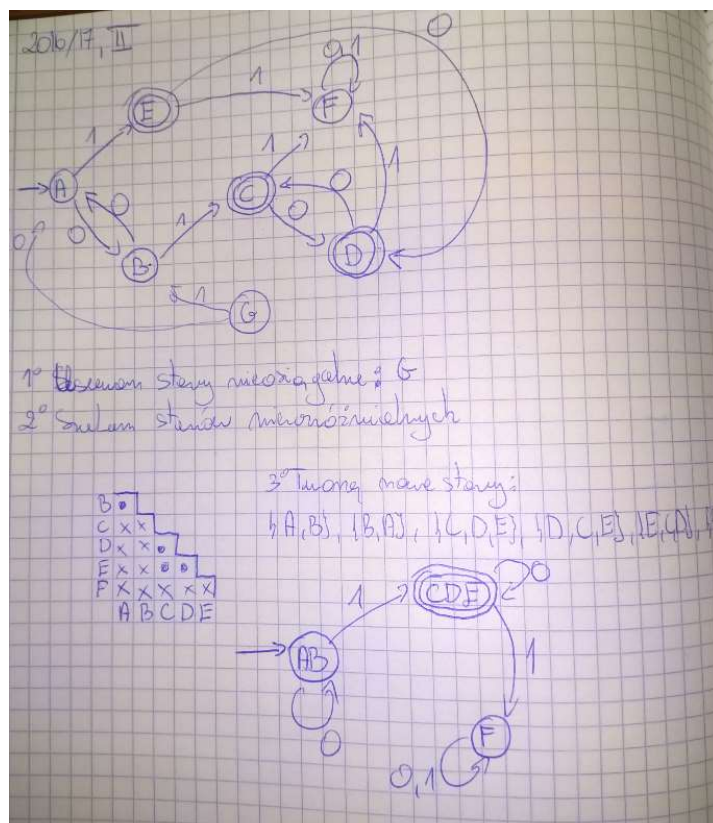 2016/17, II
0
0,1
E
1
F
1
1
1
A
0
C
0
0
1
0
0
B
D
1
G
1° Usuwam stany nieosiągalne: G
2° Szukam stanów nierozróżnialnych
3° Tworzę nowe stany:
{A,B}, {B,A}, {C,D,E}, {D,C,E}, {E,C,D}, {
B •
C x x
D x x •
E x x • •
F x x x x x
A B C D E
1
CDE
0
AB
1
0
F
0,1